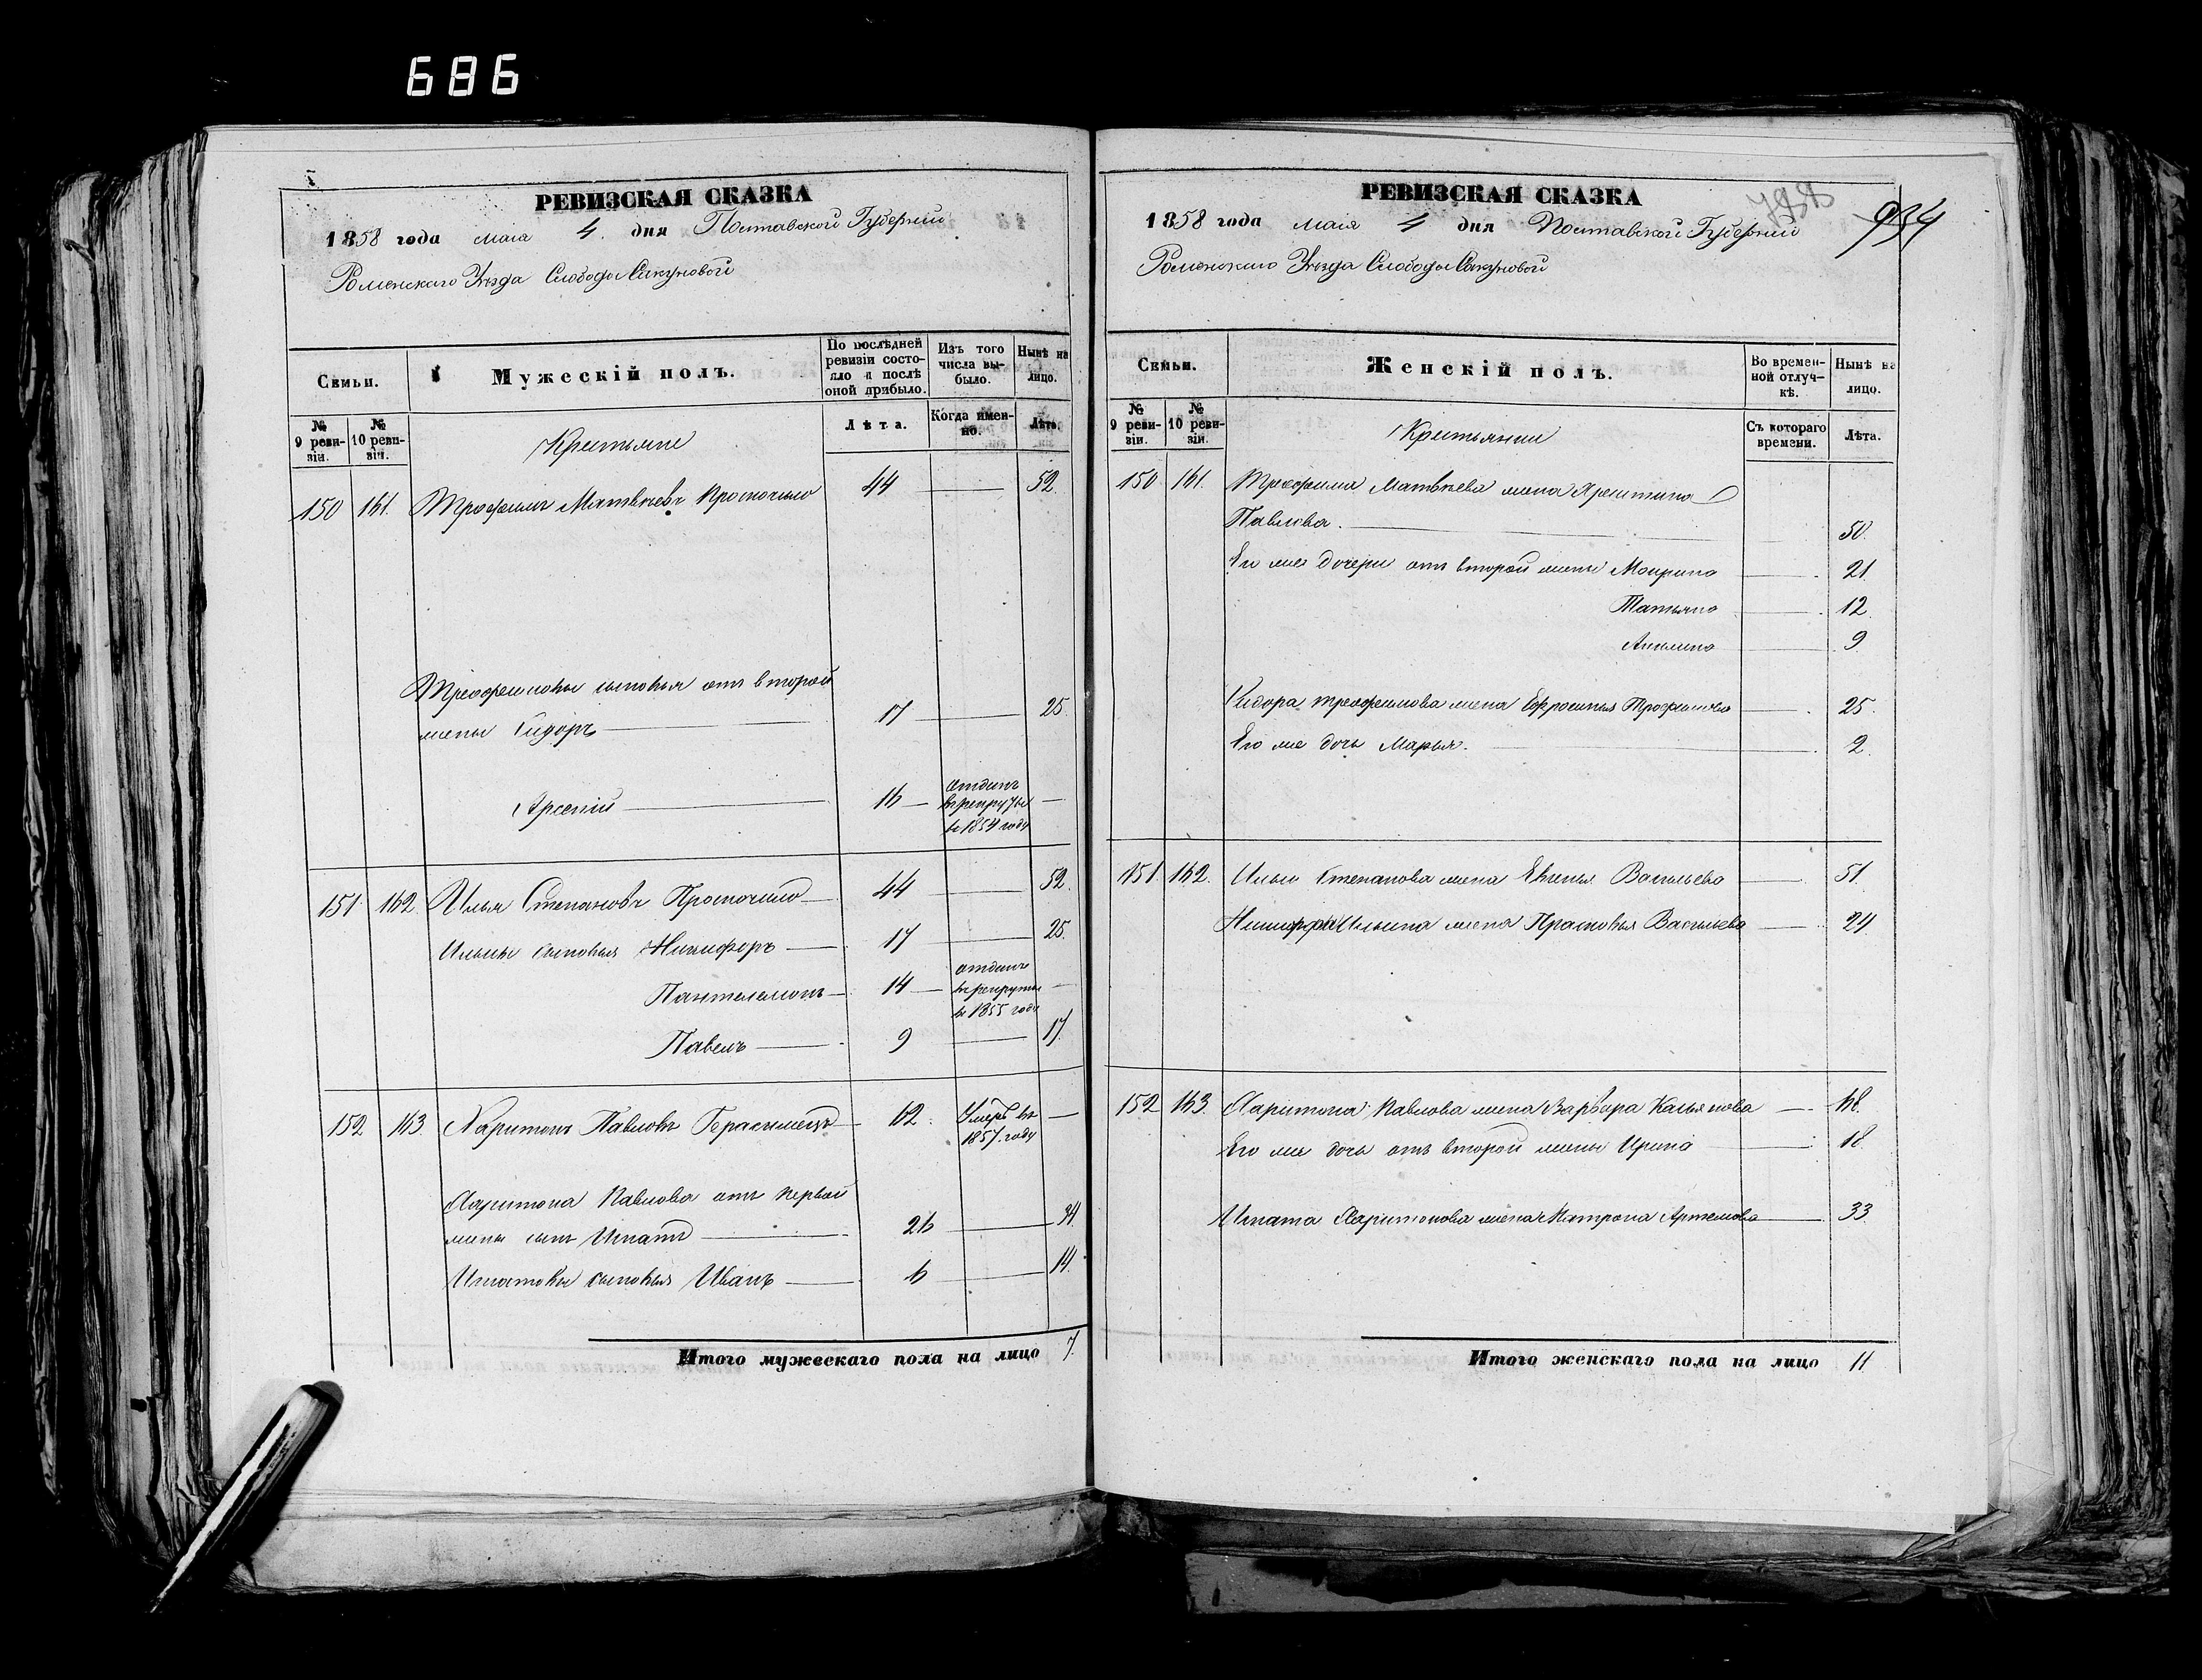 686
РЕВИЗСКАЯ СКАЗКА
1858 года маія 4 дня Полтавской Губерніи
Роменскаго Уѣзда Слободы Сакуновой
Свмьи.
Мужескій полъ.
По послѣдней ревизіи состояло и послѣ оной прибыло.
Изъ того числа выбыло.
Нынѣ на лицо.
№ 9 ревизіи.
№ 10 ревизіи.
Крестьяне
Лѣта.
Когда именно.
Лѣта.
150 161. Трофимъ Матвѣевъ 44 52.
Трофимовы сыновья отъ второй
жены Сидоръ 17 25.
Арсеній 16 отданъ
въ рекруты
въ 1854 году
151 162 Илья Степановъ 44 52.
Ильины сыновья Никифоръ 17 25.
Пантелемонъ 14 отданъ
въ рекруты
въ 1855 году
Павелъ 9 17.
152 163. Харитонъ Павловъ 62. Умеръ въ
1857. году
Харитона Павлова отъ первой
жены сынъ Игнатъ 26 34.
Игнатовы сыновья Иванъ 6 14.
Итого мужескаго пола на лицо 7.
РЕВИЗСКАЯ СКАЗКА
934
1858 года маія 4 дня Полтавской Губерніи
Роменскаго Уѣзда Слободы Сакуновой
Свмьи.
Женскій полъ.
Во временной отлучкѣ.
Нынѣ на лицо.
№ 9 ревизіи.
№ 10 ревизіи.
Крестьянки
Съ котораго времени.
Лѣта.
150 161. Трофима Матвѣева жена Христина
Павлова. 50.
Его же дочери отъ второй жены 21.
Татьяна 12.
Акилина 9.
Сидора Трофимова жена Ефросинья Трофимова 25.
Его же дочь Марья. 2.
151 162. Ильи Степанова жена Евгенья Васильева 51.
Никифора Ильина жена Прасковья Васильева 24
152 163. Харитона Павлова жена Варвара Касьянова 68.
Его же дочь отъ второй жены Ирина 18.
Игната Харитонова жена Матрона Артемова 33.
Итого женскаго пола на лицо 11.